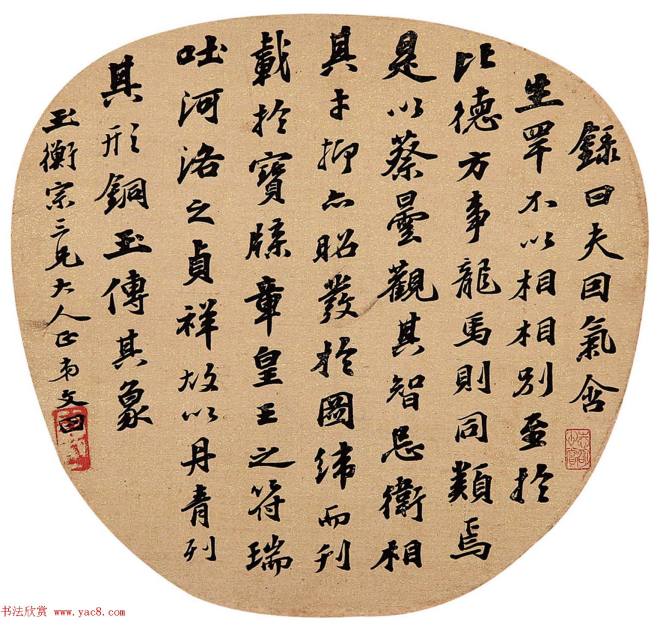 錄曰夫囙氣含
生罕不以相相別至於
比德方事龍馬則同類焉
是以蔡曇觀其智忌衛相
其才抑亦昭發於圖緯而刊
載於寶牒章皇王之符瑞
吐河洛之貞祥故以丹青列
其形銅玉傳其象
玉衡宗三兄大人正 弟文田
书法欣赏 www.yac8.com